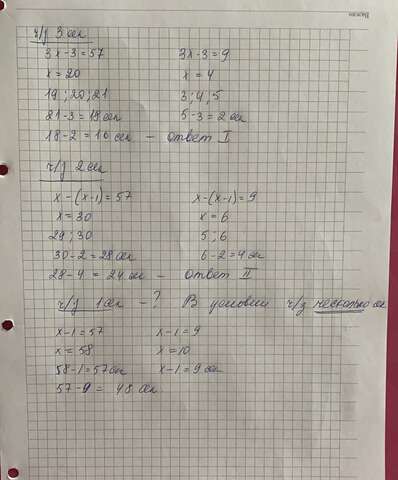 ч/з 3 сек
3x-3=57 3x-3=9
x=20 x=4
19; 20; 21 3; 4; 5
21-3=18 сек 5-3=2 сек
18-2=16 сек - ответ I
ч/з 2 сек
x-(x-1)=57 x-(x-1)=9
x=30 x=6
29; 30 5; 6
30-2=28 сек 6-2=4 сек
28-4=24 сек - ответ II
ч/з 1 сек -? В условии ч/з несколько сек
x-1=57 x-1=9
x=58 x=10
58-1=57 сек x-1=9 сек
57-9= 48 сек